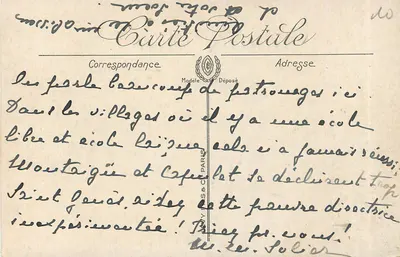 et votre
Carte Postale
Correspondance
Adresse
Modèle Déposé
On parle beaucoup de patronages ici
Dans les villages où il y a une école
libre et école laïque cela n'a jamais réussi,
Montaigu et Capulet se déchirent trop
Saint Genès aidez cette pauvre directrice
inexpérimentée! Priez pr. nous!
M. M.
PARIS